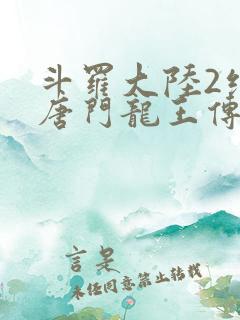 斗羅大陸2絕
唐門龍王傳
言是
未經同意禁止轉載